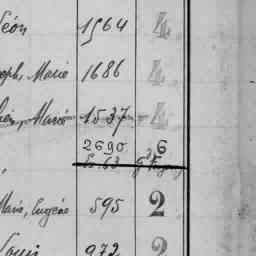 Léon 1564 4
Joseph, Marie 1686 4
Marie 1537 4
2690 6
Marie, Eugène 595 2
Louis 972 2